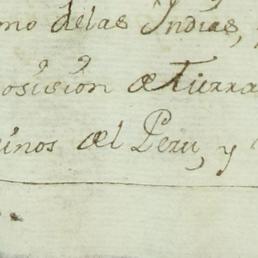 mo delas Indias,
posision de Tierra
inos del Peru, y